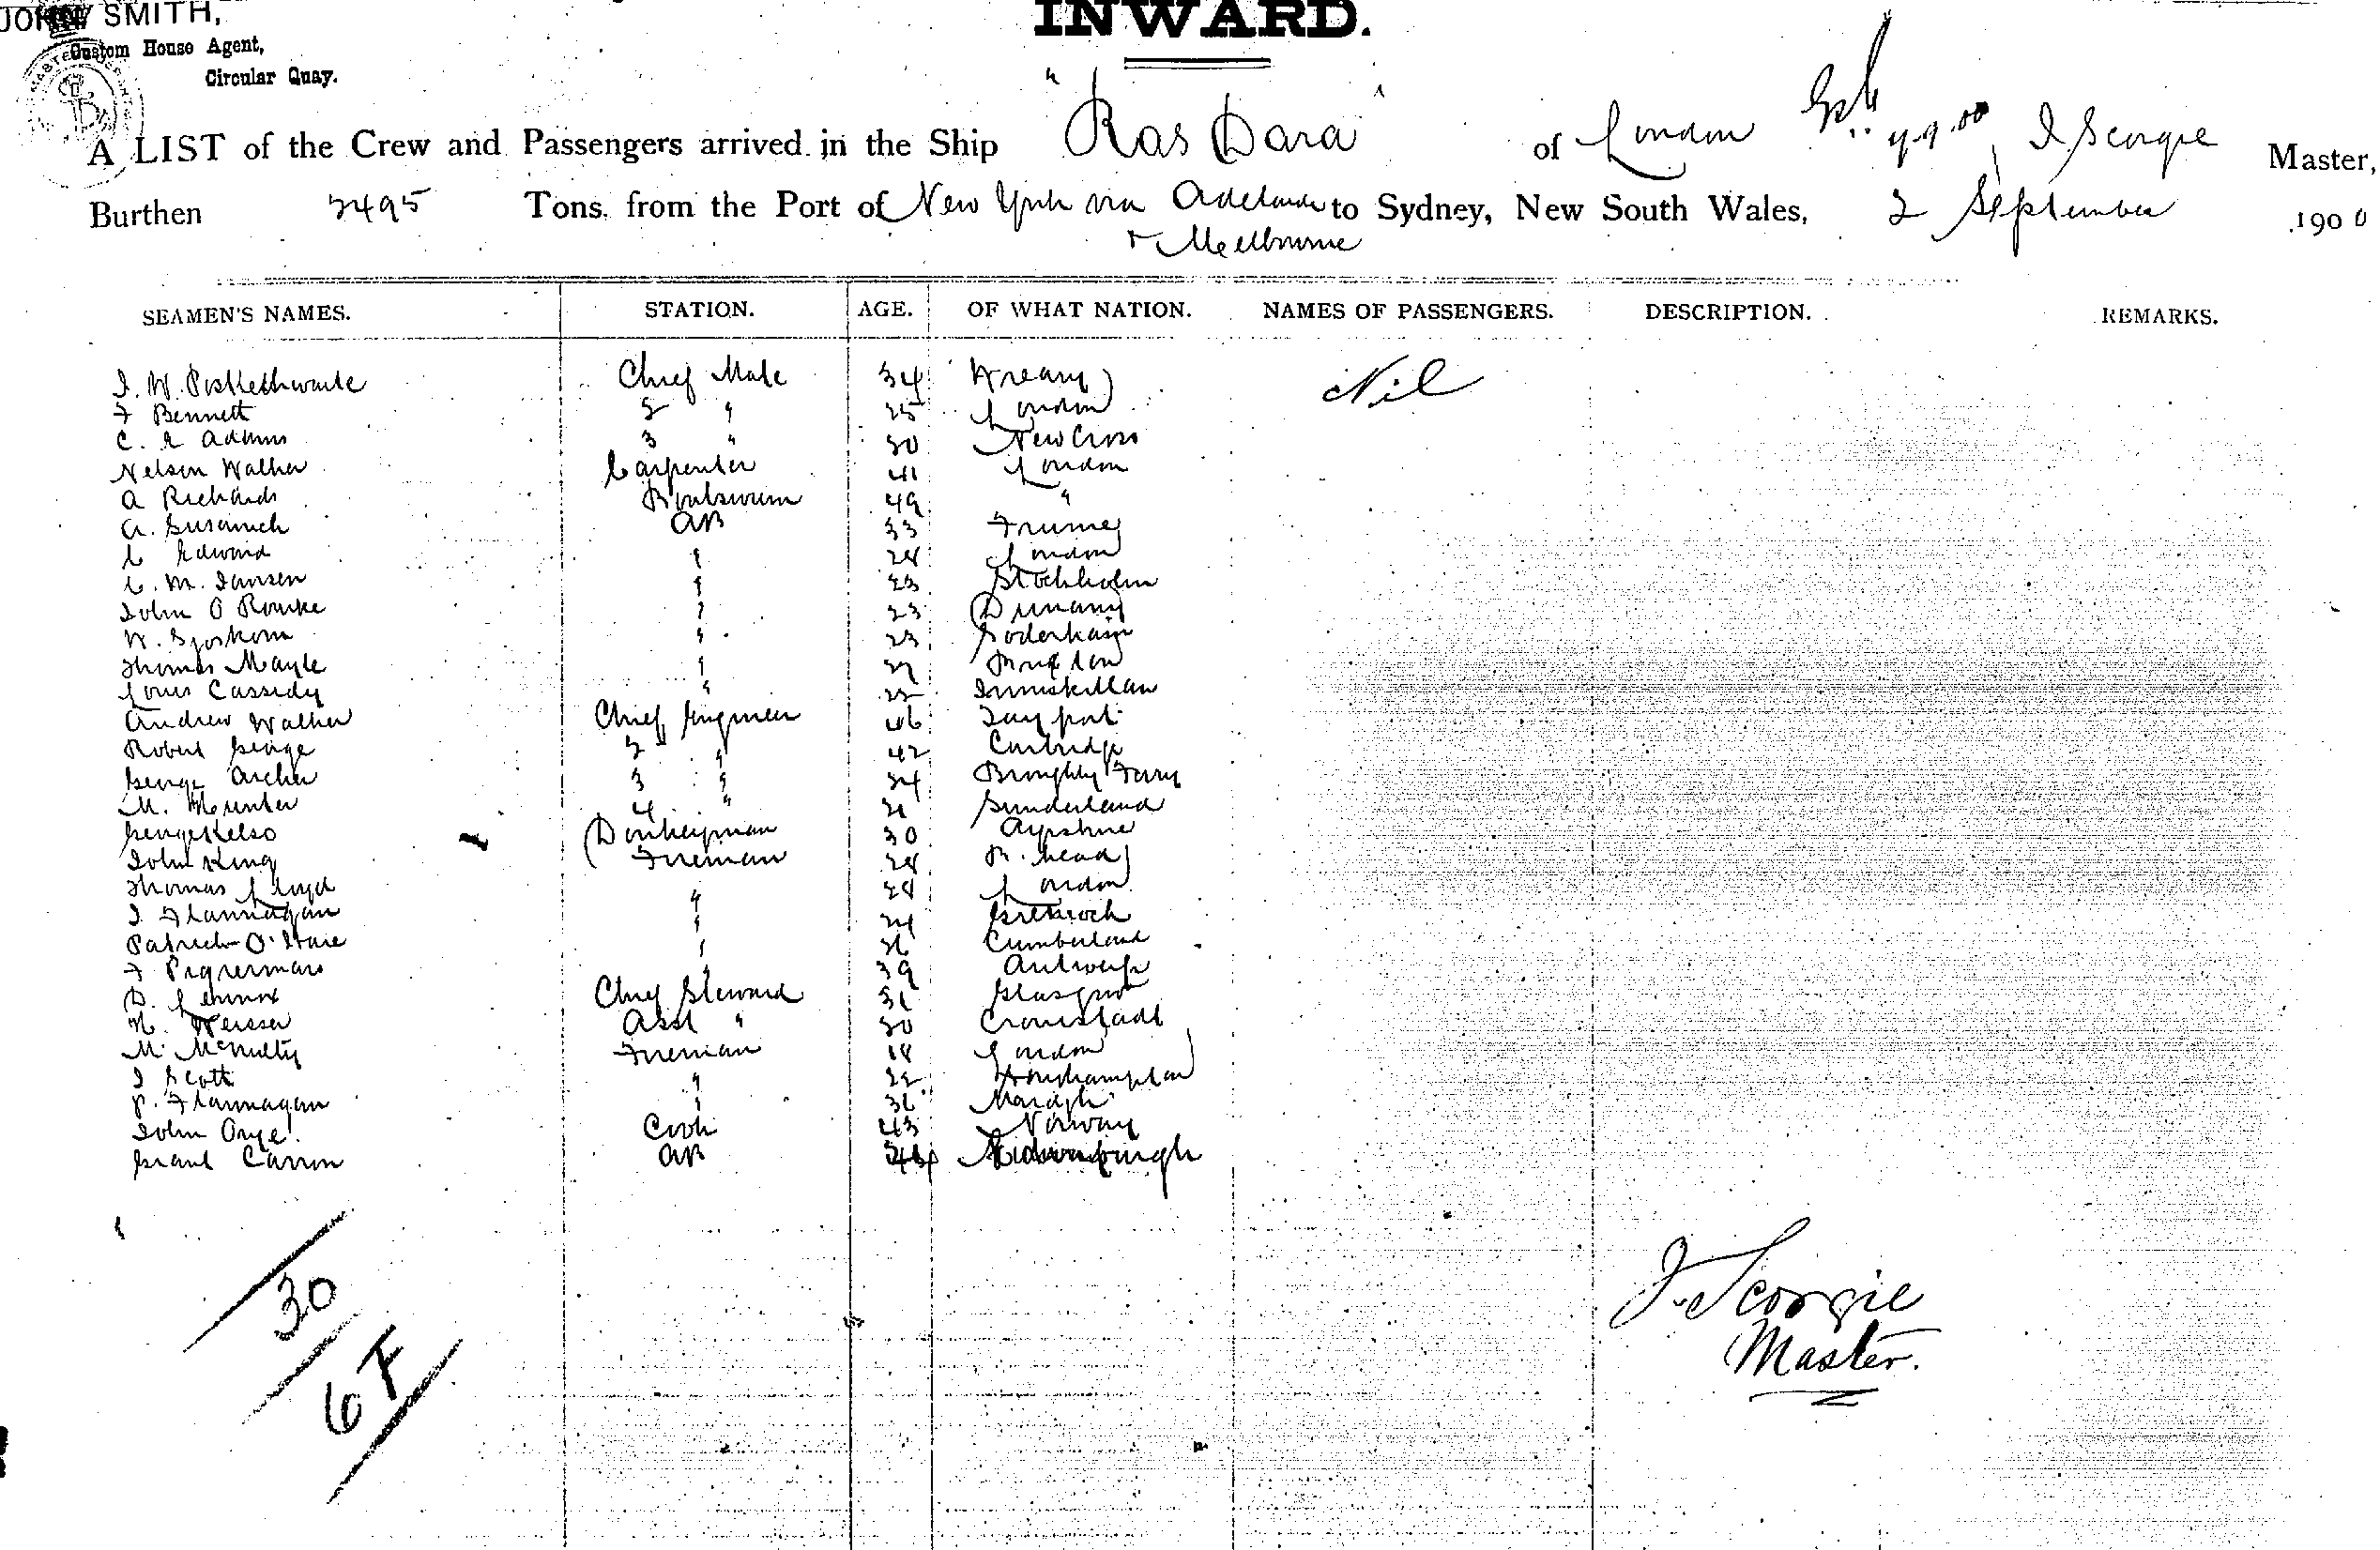 JOHN SMITH,
Custom House Agent,
Circular Quay.
INWARD.
A LIST of the Crew and Passengers arrived in the Ship "Ras Dara" of London J Scorgie Master,
Burthen 2495 Tons from the Port of New York via Adelaide to Sydney, New South Wales, 2 September 1900
& Melbourne
SEAMEN'S NAMES. STATION. AGE. OF WHAT NATION. NAMES OF PASSENGERS. DESCRIPTION. REMARKS.
J. W. Postlethwaite Chief Mate 34 Nil
F Bennett 2 " 25 London
C. E Adams 3 " 30 New Cross
Nelson Walker Carpenter 41 London
A Richards Boatswain 49 "
A. Susanich AB 33 Fiume
C Edward " 24 London
C. M. Jansen " 23 Stockholm
John O Rourke " 23 Dunany
W. Sjoskom " 23 Soderham
Thomas Mayle "
Louis Cassidy " 22 Inniskillan
Andrew Walker Chief Engineer 46 Tayport
Robert George 2 " 42 Carbridge
George Archer 3 " 24 Broughty Ferry
M. Hunter 4 " 21 Sunderland
George Kelso Donkeyman 30 Ayrshire
John King Fireman 28 B. head
Thomas Lloyd " 28 London
J Flannagan " 24 Greenock
Patrick O'Hare " 26 Cumberland
F Pagrerman " 39 Antwerp
D. Lennox Chief Steward 31 Glasgow
Asst " 30 Cronstadt
M. McNulty Fireman 18 London
J Scott " 22
P. Flannagan " 36
John Onge Cook 43 Norway
Grant Carron AB Edinburgh
30
6 F
J. Scorgie
Master.